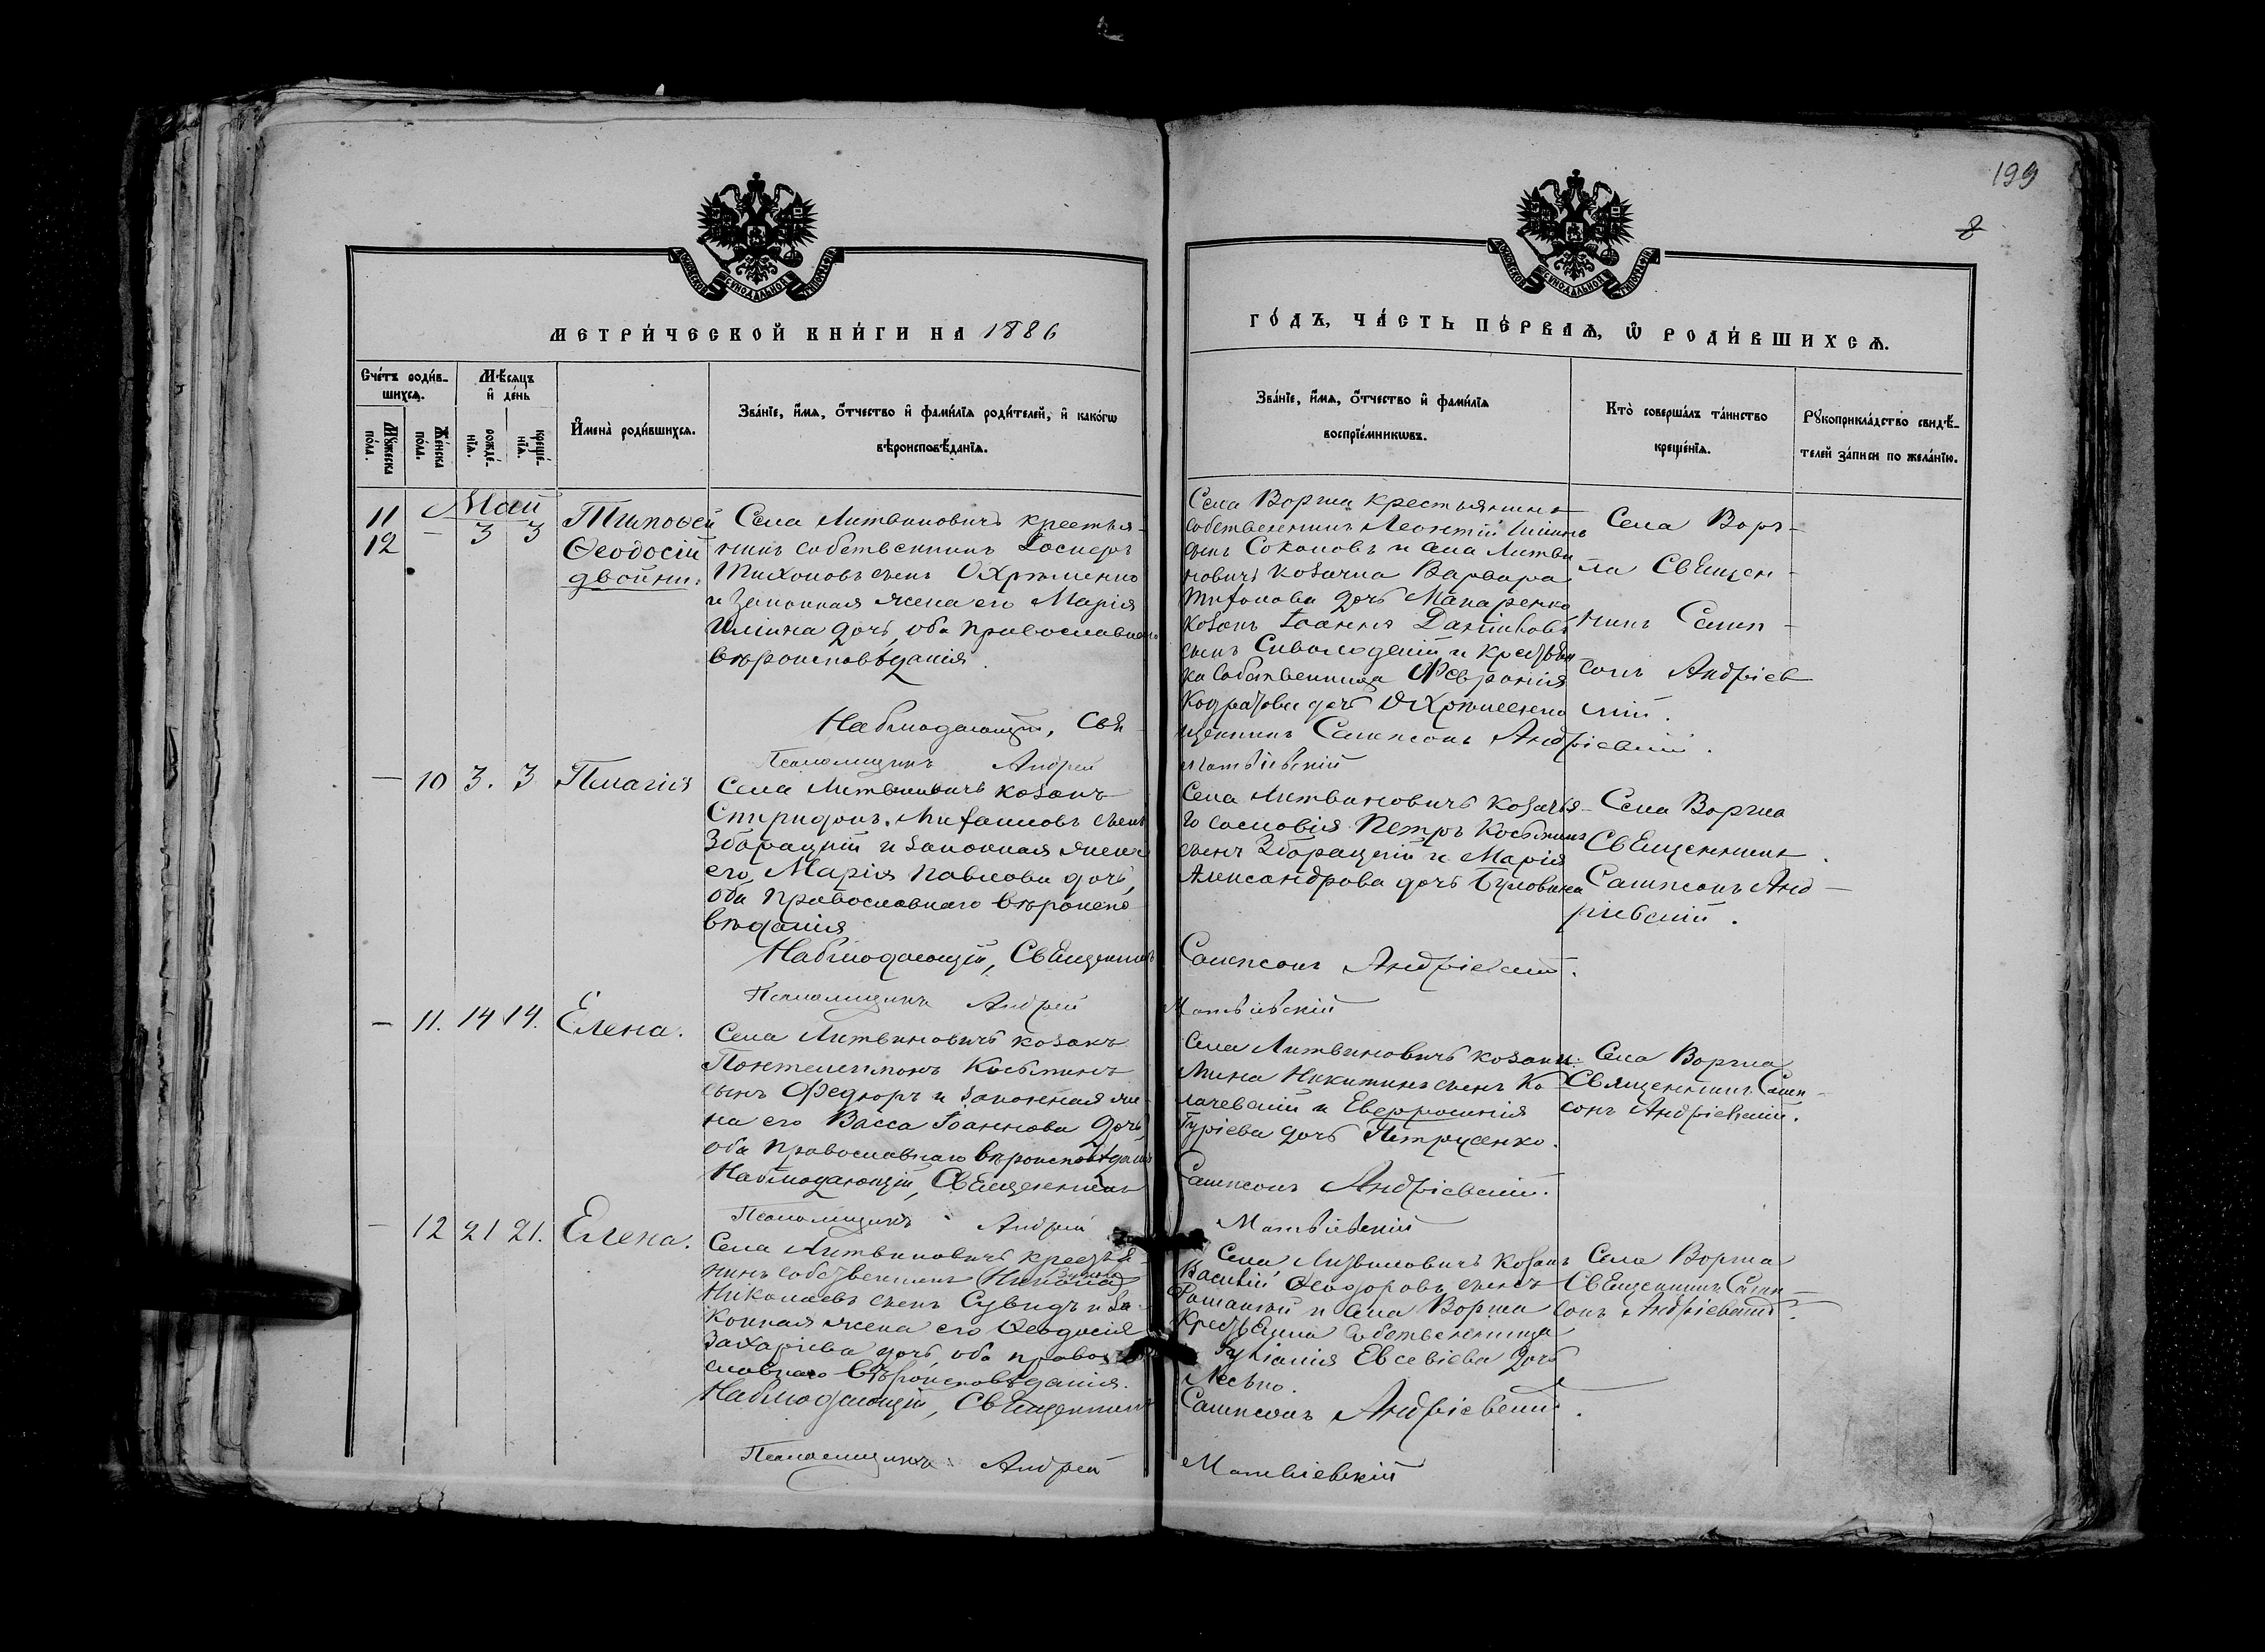 199
8
МЕТРИ́ЧЕСКОЙ КНИ́ГИ НА 1886
ГО́ДЪ, ЧА́СТЬ ПЕ́РВАѦ, Ѡ҆ РОДИ́ВШИХСѦ.
Сче́тъ роди́в-
шихсѧ.
Мꙋ́жеска
по́ла.
Же́нска
по́ла.
Мѣ́сяцъ
и҆ де́нь
рожде́-
нїѧ.
креще́-
нїѧ.
И҆мена̀ роди́вшихсѧ.
Зва́нїе, и҆́мѧ, ѻ҆́тчество и҆ фами́лїѧ роди́телей, и҆ како́гѡ
вѣроисповѣ́данїѧ.
Зва́нїе, и҆́мѧ, ѻ҆́тчество и҆ фами́лїѧ
воспрїе́мникѡвъ.
Кто̀ соверша́лъ та́инство
креще́нїѧ.
Рꙋкоприкла́дство свидѣ́-
телей за́писи по жела́нїю.
Май
11 – 3 3
12 –
Тимофей
Ѳеодосій
двойни.
Села Литвиновичъ крестья-
нинъ собственникъ
Тихоновъ сынъ Охрименко
и законная жена его Марія
Иліина дочь, оба православнаго
вѣроисповѣданія.
Наблюдающій, Свя-
Псаломщикъ Андрей
Села Воргла крестьянинъ
собственникъ Леонтій Иліинъ
сынъ Соколовъ и села Литви
новичъ козачка Варвара
дочь Макаренко
козакъ Іоаннъ
сынъ и крестьян
ка собственница Февронія
Кодратова дочь Охрименко
щенникъ Сампсонъ Андріевскій.
Матвіевскій
Села Ворг-
ла Священ-
никъ Самп-
сонъ Андріев
скій.
– 10 3. 3 Пелагія
Села Литвиновичъ козакъ
Спиридонъ сынъ
Зборацкій и законная жена
его, Марія Павлова дочь,
оба православнаго вѣроиспо
вѣданія
Наблюдающій, Священникъ
Псаломщикъ Андрей
Села Литвиновичъ козачья-
го сословія Петръ Косьминъ
сынъ Зборацкій и Марія
Александрова дочь
Сампсонъ Андріевскій.
Матвіевскій
Села Воргла
Священникъ
Сампсонъ Анд-
ріевскій.
– 11. 14 14. Елена.
Села Литвиновичъ козакъ
Пантелеимонъ Косьминъ
сынъ Федюръ и законная же
на его Васса Іоаннова дочь,
оба православнаго вѣроисповѣданія
Наблюдающій, Священникъ
Псаломщикъ Андрей
Села Литвиновичъ козаки:
Мина Никитинъ сынъ Ко
лачевскій и Евфросинія
Гуріева дочь Петрусенко.
Сампсонъ Андріевскій.
Матвіевскій
Села Воргла
Священникъ Самп-
сонъ Андріевскій.
– 12 21 21. Елена.
Села Литвиновичъ крестья-
нинъ собственникъ
Николаевъ сынъ Сувидъ и за-
конная жена его Ѳеодосія
Захаріева дочь, оба право-
славнаго вѣроисповѣданія.
Наблюдающій, Священникъ
Псаломщикъ Андрей
Села Литвиновичъ козакъ
Василій Ѳеодоровъ сынъ
и села Воргла
крестьянка собственница
Іуліанія Евсевіева дочь
Лесько.
Сампсонъ Андріевскій.
Матвіевскій
Села Воргла
Священникъ Самп-
сонъ Андріевскій.